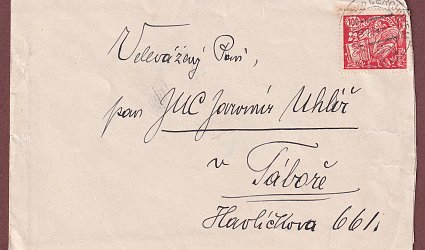 Velevážený Paní,
pan JUC Jaromír Uhlíř
v
Táboře
Havlíčkova 661.
100